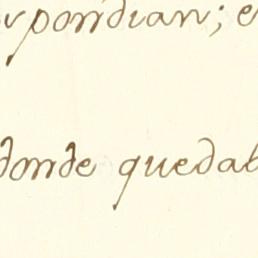 pondian; e
donde quedab